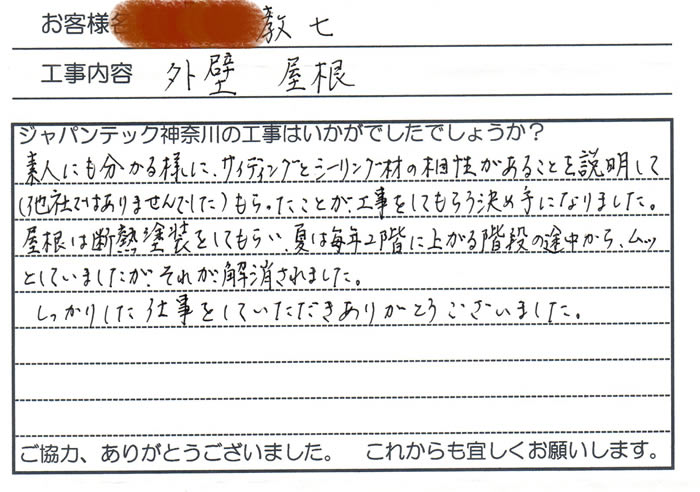 お客様名 教七
工事内容 外壁 屋根
ジャパンテック神奈川の工事はいかがでしたでしょうか?
素人にも分かる様に、サイディングとシーリング材の相性があることを説明して
(他社ではありませんでした)もらったことが、工事をしてもらう決め手になりました。
屋根は断熱塗装をしてもらい、夏は毎年2階に上がる階段の途中から、ムッ
としていましたが、それが解消されました。
しっかりした仕事をしていただきありがとうございました。
ご協力、ありがとうございました。 これからも宜しくお願いします。